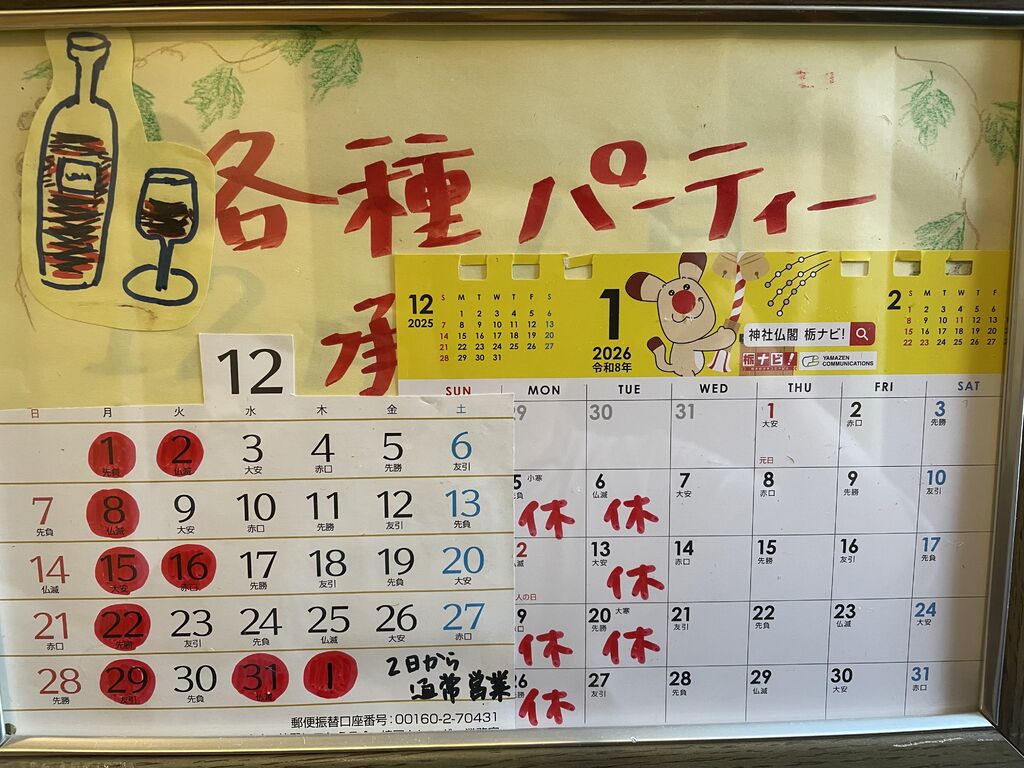 各種パーティー
承
12
2025
S M T W T F S
1 2 3 4 5 6
7 8 9 10 11 12 13
14 15 16 17 18 19 20
21 22 23 24 25 26 27
28 29 30 31
1
2026
令和8年
神社仏閣 栃ナビ!
栃ナビ!
YAMAZEN
COMMUNICATIONS
2
S M T W T F
1 2 3 4 5 6
8 9 10 11 12 13
15 16 17 18 19 20
22 23 24 25 26 27
SUN MON TUE WED THU FRI SAT
30 31 1 2 3
大安 赤口 先勝
元日
小寒 6 7 8 9 10
仏滅 大安 赤口 先勝 友引
休 休
13 14 15 16 17
大安 赤口 先勝 友引 先負
人の日 休
20 大寒 21 22 23 24
先勝 友引 先負 仏滅 大安
休 休
27 28 29 30 31
友引 先負 仏滅 大安 赤口
休
12
日 月 火 水 木 金 土
1 2 3 4 5 6
先負 仏滅 大安 赤口 先勝 友引
7 8 9 10 11 12 13
先負 仏滅 大安 赤口 先勝 友引 先負
14 15 16 17 18 19 20
仏滅 大安 赤口 先勝 友引 先負 大安
21 22 23 24 25 26 27
赤口 先勝 友引 先負 仏滅 大安 赤口
28 29 30 31 1
先勝 友引 先負 仏滅
2日から
通常営業
郵便振替口座番号:00160-2-70431